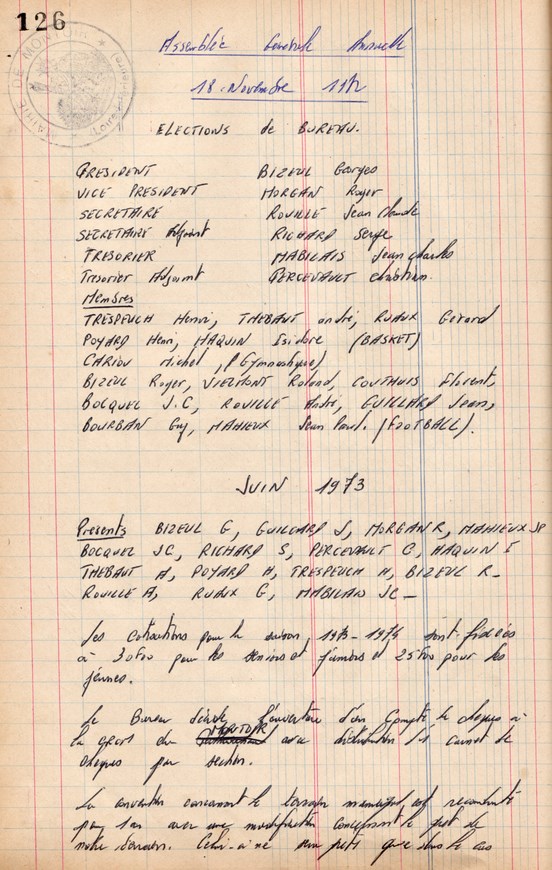 126
MAIRIE DE MONTOIR
Assemblée Générale Annuelle
18 Novembre 1972
ELECTIONS de BUREAU.
PRESIDENT BIZEUL Georges
VICE PRESIDENT MORGAN Roger
SECRETAIRE ROUILLE Jean Claude
SECRETAIRE Adjoint RICHARD Serge
TRESORIER MABILAIS Jean charles
Tresorier Adjoint PERCEVAULT christian.
Membres
TRESPEUCH Henri, THEBAUT andré, RUAUX Gerard
POYARD Henri, HAQUIN Isidore (BASKET)
CARIOU Michel, (Gymnastique)
BIZEUL Roger, VIELMONT Roland, COUTHUIS Florent,
BOCQUEL J.C, ROUILLE André, GUILLARD Jean,
BOURBAN Guy, MAHIEUX Jean Paul. (FOOTBALL).
JUIN 1973
Presents BIZEUL G, GUILLARD J, MORGAN R, MAHIEUX JP
BOCQUEL JC, RICHARD S, PERCEVAULT C, HAQUIN I
THEBAUT A, POYARD H, TRESPEUCH H, BIZEUL R_
ROUILLE A, RUAUX G, MABILAIS JC_
Les cotisations pour la saison, 1973-1974 sont fixées
à 30F00 pour les seniors et juniors et 25F00 pour les
jeunes.
Le Bureau décide l'ouverture d'un Compte de cheques à
MONTOIR
la du avec distribution d'1 carnet de
cheques par section.
La convention concernant le terrain municipal, est reconduite
pour 1 an avec une modification concernant le
notre terrain. Celui-ci ne peut que dans le cas